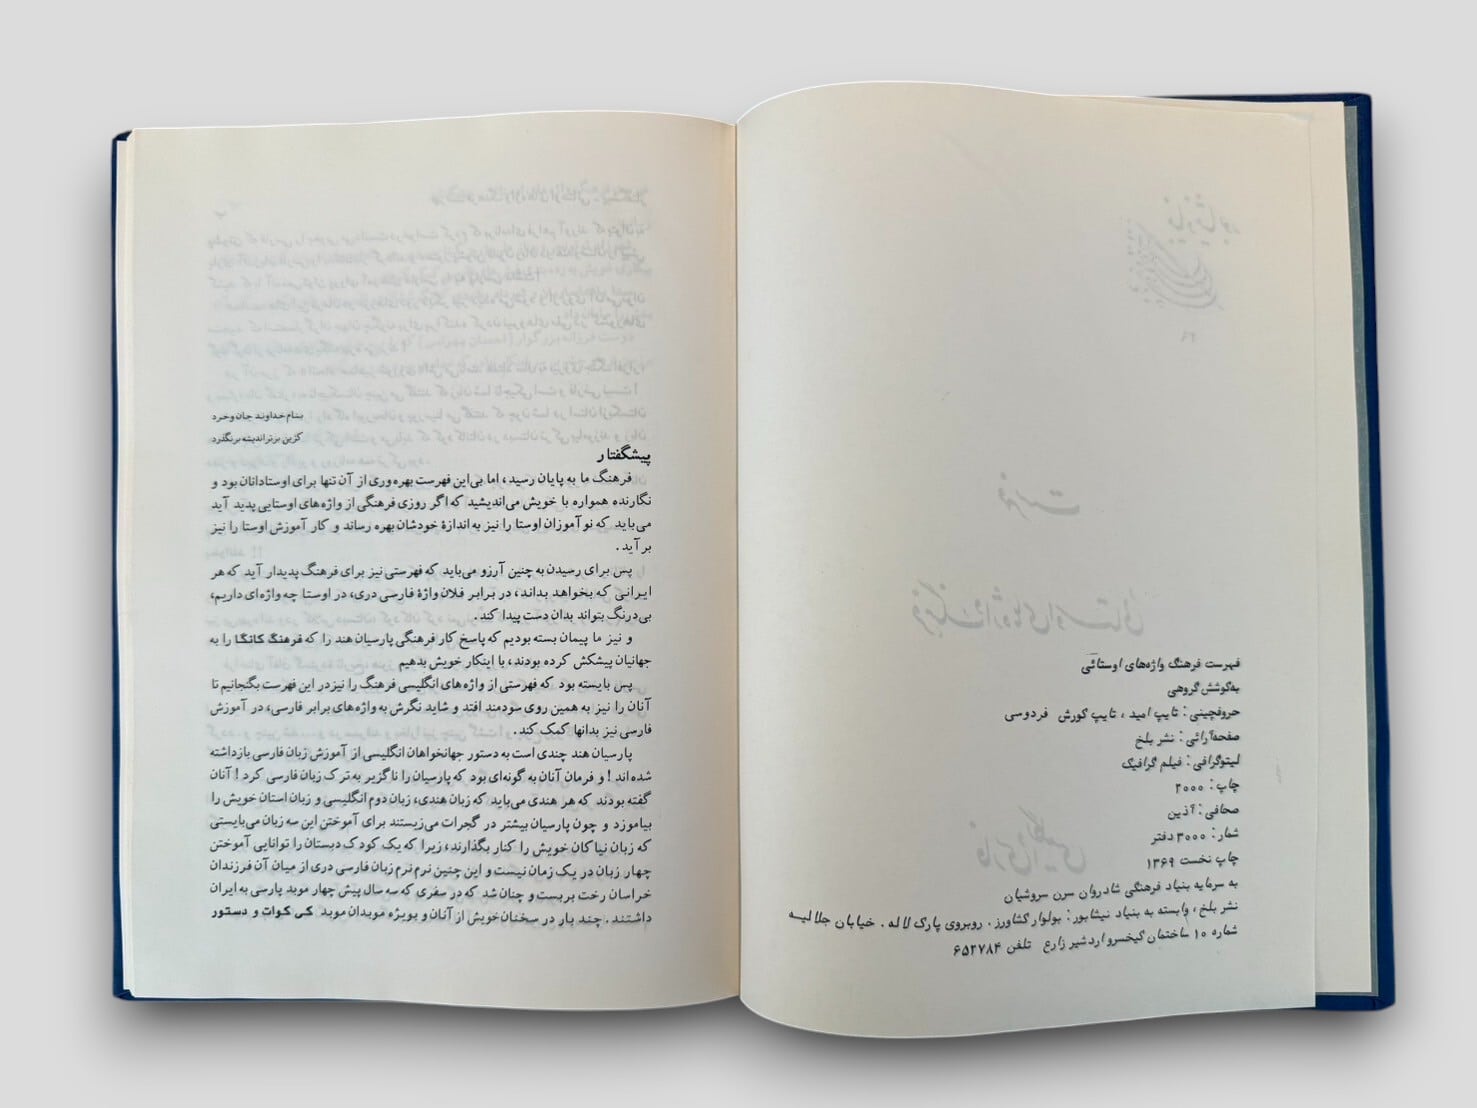 فهرست فرهنگ واژه‌های اوستائی
به‌کوشش گروهی
حروفچینی: تایپ امید، تایپ کورش فردوسی
صفحه‌آرائی: نشر بلخ
لیتوگرافی: فیلم گرافیک
چاپ: ۲۰۰۰
صحافی: آذین
شمار: ۳۰۰۰ دفتر
چاپ نخست ۱۳۶۹
به سرمایه بنیاد فرهنگی شادروان سرن سروشیان
نشر بلخ، وابسته به بنیاد نیشابور: بولوار کشاورز. روبروی پارک لاله. خیابان جلالیه
شماره ۱۰ ساختمان کیخسرو اردشیر زارع تلفن ۶۵۲۷۸۴
بنام خداوند جان و خرد
کزین برتر اندیشه برنگذرد
پیشگفتار
فرهنگ ما به پایان رسید، اما بی‌این فهرست بهره وری از آن تنها برای اوستادانان بود و
نگارنده همواره با خویش می‌اندیشید که اگر روزی فرهنگی از واژه‌های اوستایی پدید آید
می‌باید که نو آموزان اوستا را نیز به اندازهٔ خودشان بهره رساند و کار آموزش اوستا را نیز
بر آید.
پس برای رسیدن به چنین آرزو می‌باید که فهرستی نیز برای فرهنگ پدیدار آید که هر
ایرانی که بخواهد بداند، در برابر فلان واژهٔ فارسی دری، در اوستا چه واژه‌ای داریم،
بی‌درنگ بتواند بدان دست پیدا کند.
و نیز ما پیمان بسته بودیم که پاسخ کار فرهنگی پارسیان هند را که فرهنگ کانگا را به
جهانیان پیشکش کرده بودند، با اینکار خویش بدهیم
پس بایسته بود که فهرستی از واژه‌های انگلیسی فرهنگ را نیز در این فهرست بگنجانیم تا
آنان را نیز به همین روی سودمند افتد و شاید نگرش به واژه‌های برابر فارسی، در آموزش
فارسی نیز بدانها کمک کند.
پارسیان هند چندی است به دستور جهانخواهان انگلیسی از آموزش زبان فارسی بازداشته
شده‌اند! و فرمان آنان به گونه‌ای بود که پارسیان را ناگزیر به ترک زبان فارسی کرد! آنان
گفته بودند که هر هندی می‌باید که زبان هندی، زبان دوم انگلیسی و زبان استان خویش را
بیاموزد و چون پارسیان بیشتر در گجرات می‌زیستند برای آموختن این سه زبان می‌بایستی
که زبان نیاکان خویش را کنار بگذارند، زیرا که یک کودک دبستان را توانایی آموختن
چهار زبان در یک زمان نیست و این چنین نرم نرم زبان فارسی دری از میان آن فرزندان
خراسان رخت بربست و چنان شد که در سفری که سه سال پیش چهار موبد پارسی به ایران
داشتند. چند بار در سخنان خویش از آنان و بویژه موبدان موبد کی کوات و دستور